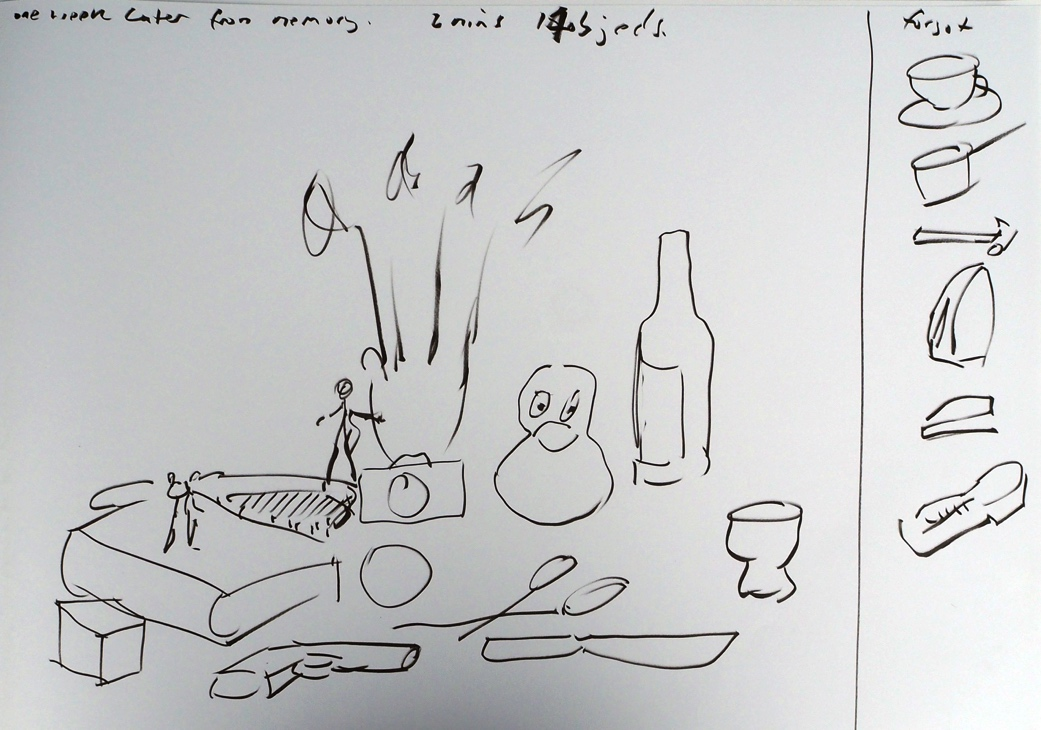 one week later from memory. 2 mins 14 objects.
forgot